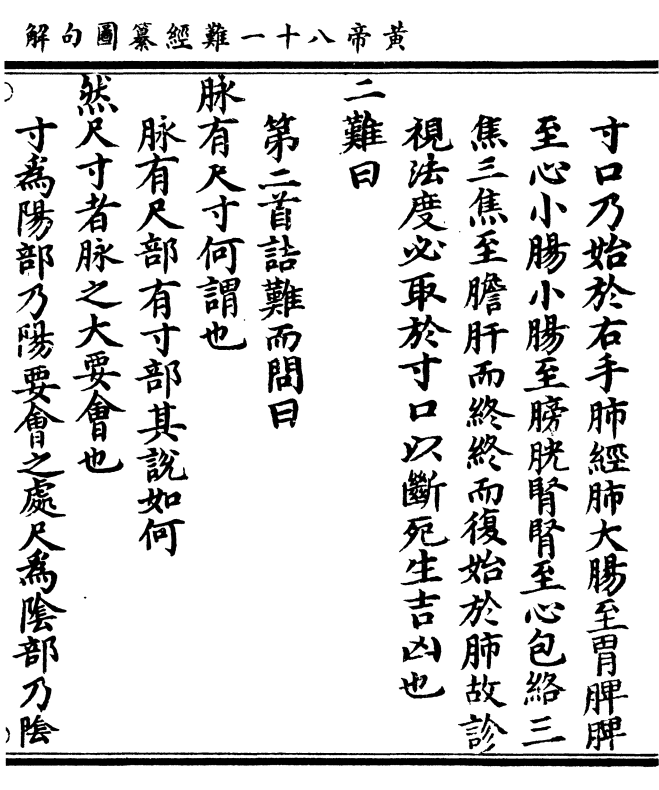 黃帝八十一難經纂圖句解
寸口乃始於右手肺經肺大腸至胃脾脾
至心小腸小腸至膀胱腎腎至心包絡三
焦三焦至膽肝而終終而復始於肺故診
視法度必取於寸口以斷死生吉凶也
二難曰
第二首詰難而問曰
脉有尺寸何謂也
脉有尺部有寸部其說如何
然尺寸者脉之大要會也
寸爲陽部乃陽要會之處尺爲陰部乃陰